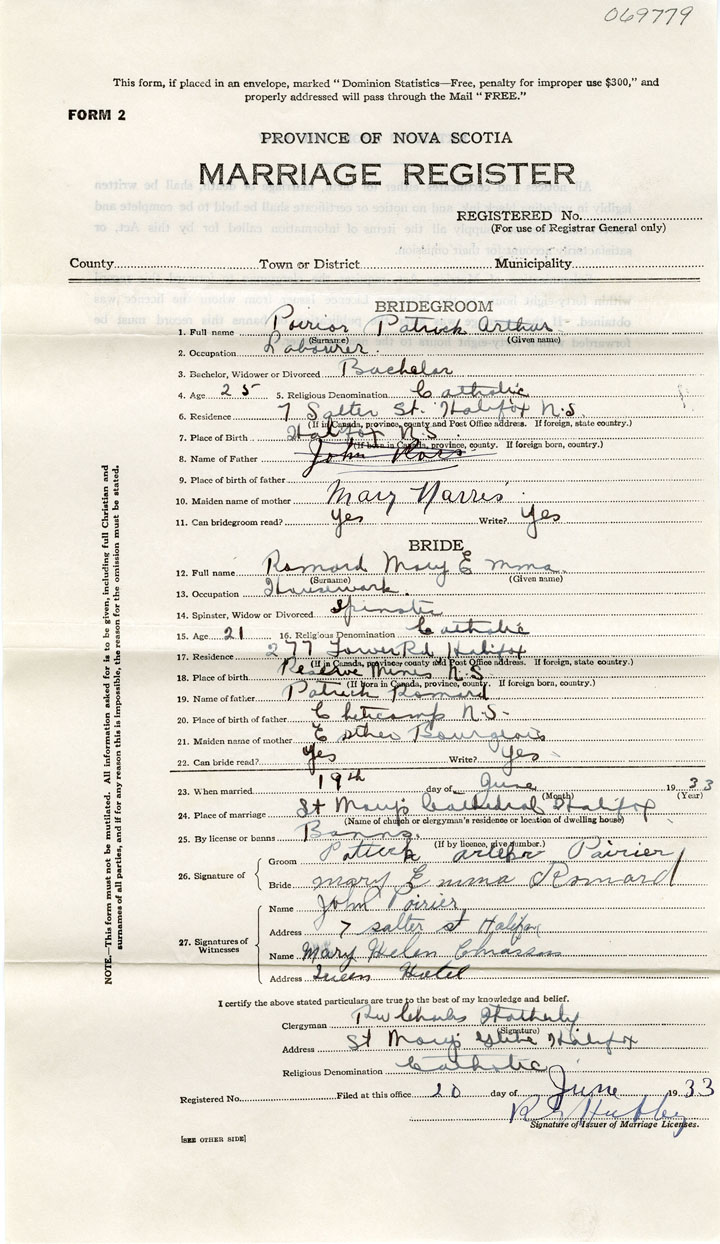 069779
This form, if placed in an envelope, marked "Dominion Statistics—Free, penalty for improper use $300," and
properly addressed will pass through the Mail "FREE."
FORM 2
PROVINCE OF NOVA SCOTIA
MARRIAGE REGISTER
REGISTERED No.
(For use of Registrar General only)
County Town or District Municipality
BRIDEGROOM
1. Full name Poirior Patrick Arthur
(Surname) (Given name)
2. Occupation Labourer.
3. Bachelor, Widower or Divorced Bachelor
4. Age 25 5. Religious Denomination Catholic
6. Residence 7 Salter St. Halifax N.S.
(If in Canada, province, county and Post Office address. If foreign, state country.)
7. Place of Birth Halifax N.S
(If born in Canada, province, county. If foreign born, country.)
8. Name of Father John
9. Place of birth of father
10. Maiden name of mother Mary Harris
11. Can bridegroom read? Yes Write? Yes
BRIDE
12. Full name Romard Mary Emma
(Surname) (Given name)
13. Occupation Housework.
14. Spinster, Widow or Divorced Spinster
15. Age 21 16. Religious Denomination Catholic
17. Residence 277 Tower Rd Halifax
(If in Canada, province, county and Post Office address. If foreign, state country.)
18. Place of birth Reserve Mines N.S.
(If born in Canada, province, county. If foreign born, country.)
19. Name of father Patrick Romard
20. Place of birth of father Cheticamp N.S.
21. Maiden name of mother Esther Bourgeois
22. Can bride read? Yes Write? Yes
23. When married 19th day of June 1933
(Month) (Year)
24. Place of marriage St Mary's Cathedral Halifax
(Name of church or clergyman's residence or location of dwelling house)
25. By license or banns Banns.
(If by licence, give number.)
26. Signature of
Groom Patrick Poirier
Bride Mary Emma Romard
27. Signatures of Witnesses
Name John Poirier
Address 7 salter st Halifax
Name Mary Helen Chiasson
Address Queen Hotel
I certify the above stated particulars are true to the best of my knowledge and belief.
Clergyman Rev Charles
(Signature)
Address St Mary's Glebe Halifax
Religious Denomination Catholic
Registered No. Filed at this office 20 day of June 1933
Signature of Issuer of Marriage Licenses.
[SEE OTHER SIDE]
NOTE.—This form must not be mutilated. All information asked for is to be given, including full Christian and
surnames of all parties, and if for any reason this is impossible, the reason for the omission must be stated.